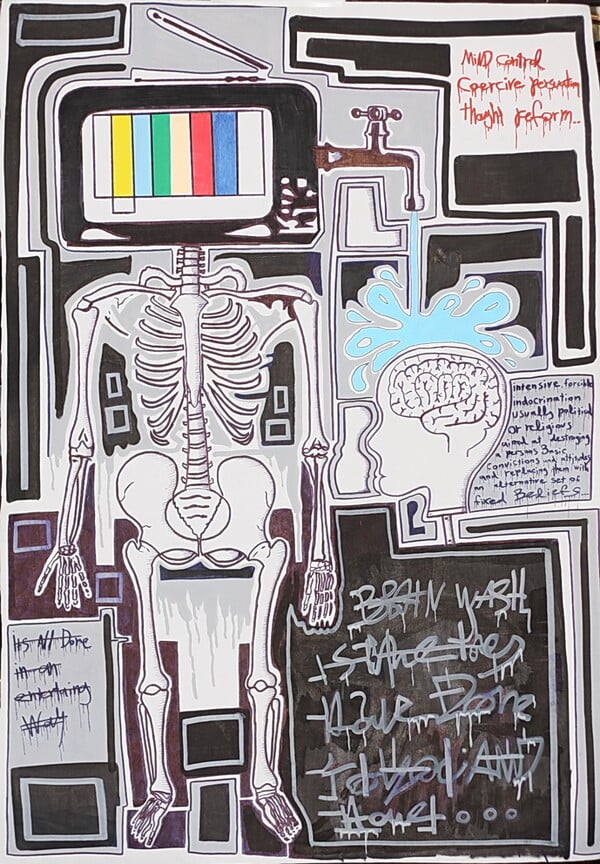 MiND control
Coercive persuation
thought reform..
intensive forcible
indocrination
usually political
or religious
aimed at destroying
a persons Basic
convictions and attitudes
and replacing them with
alternative set of
fixed Beliefs...
its All Done
in an
entertaining
Way
BRAIN WASH
is
they
Have Done
to
AND